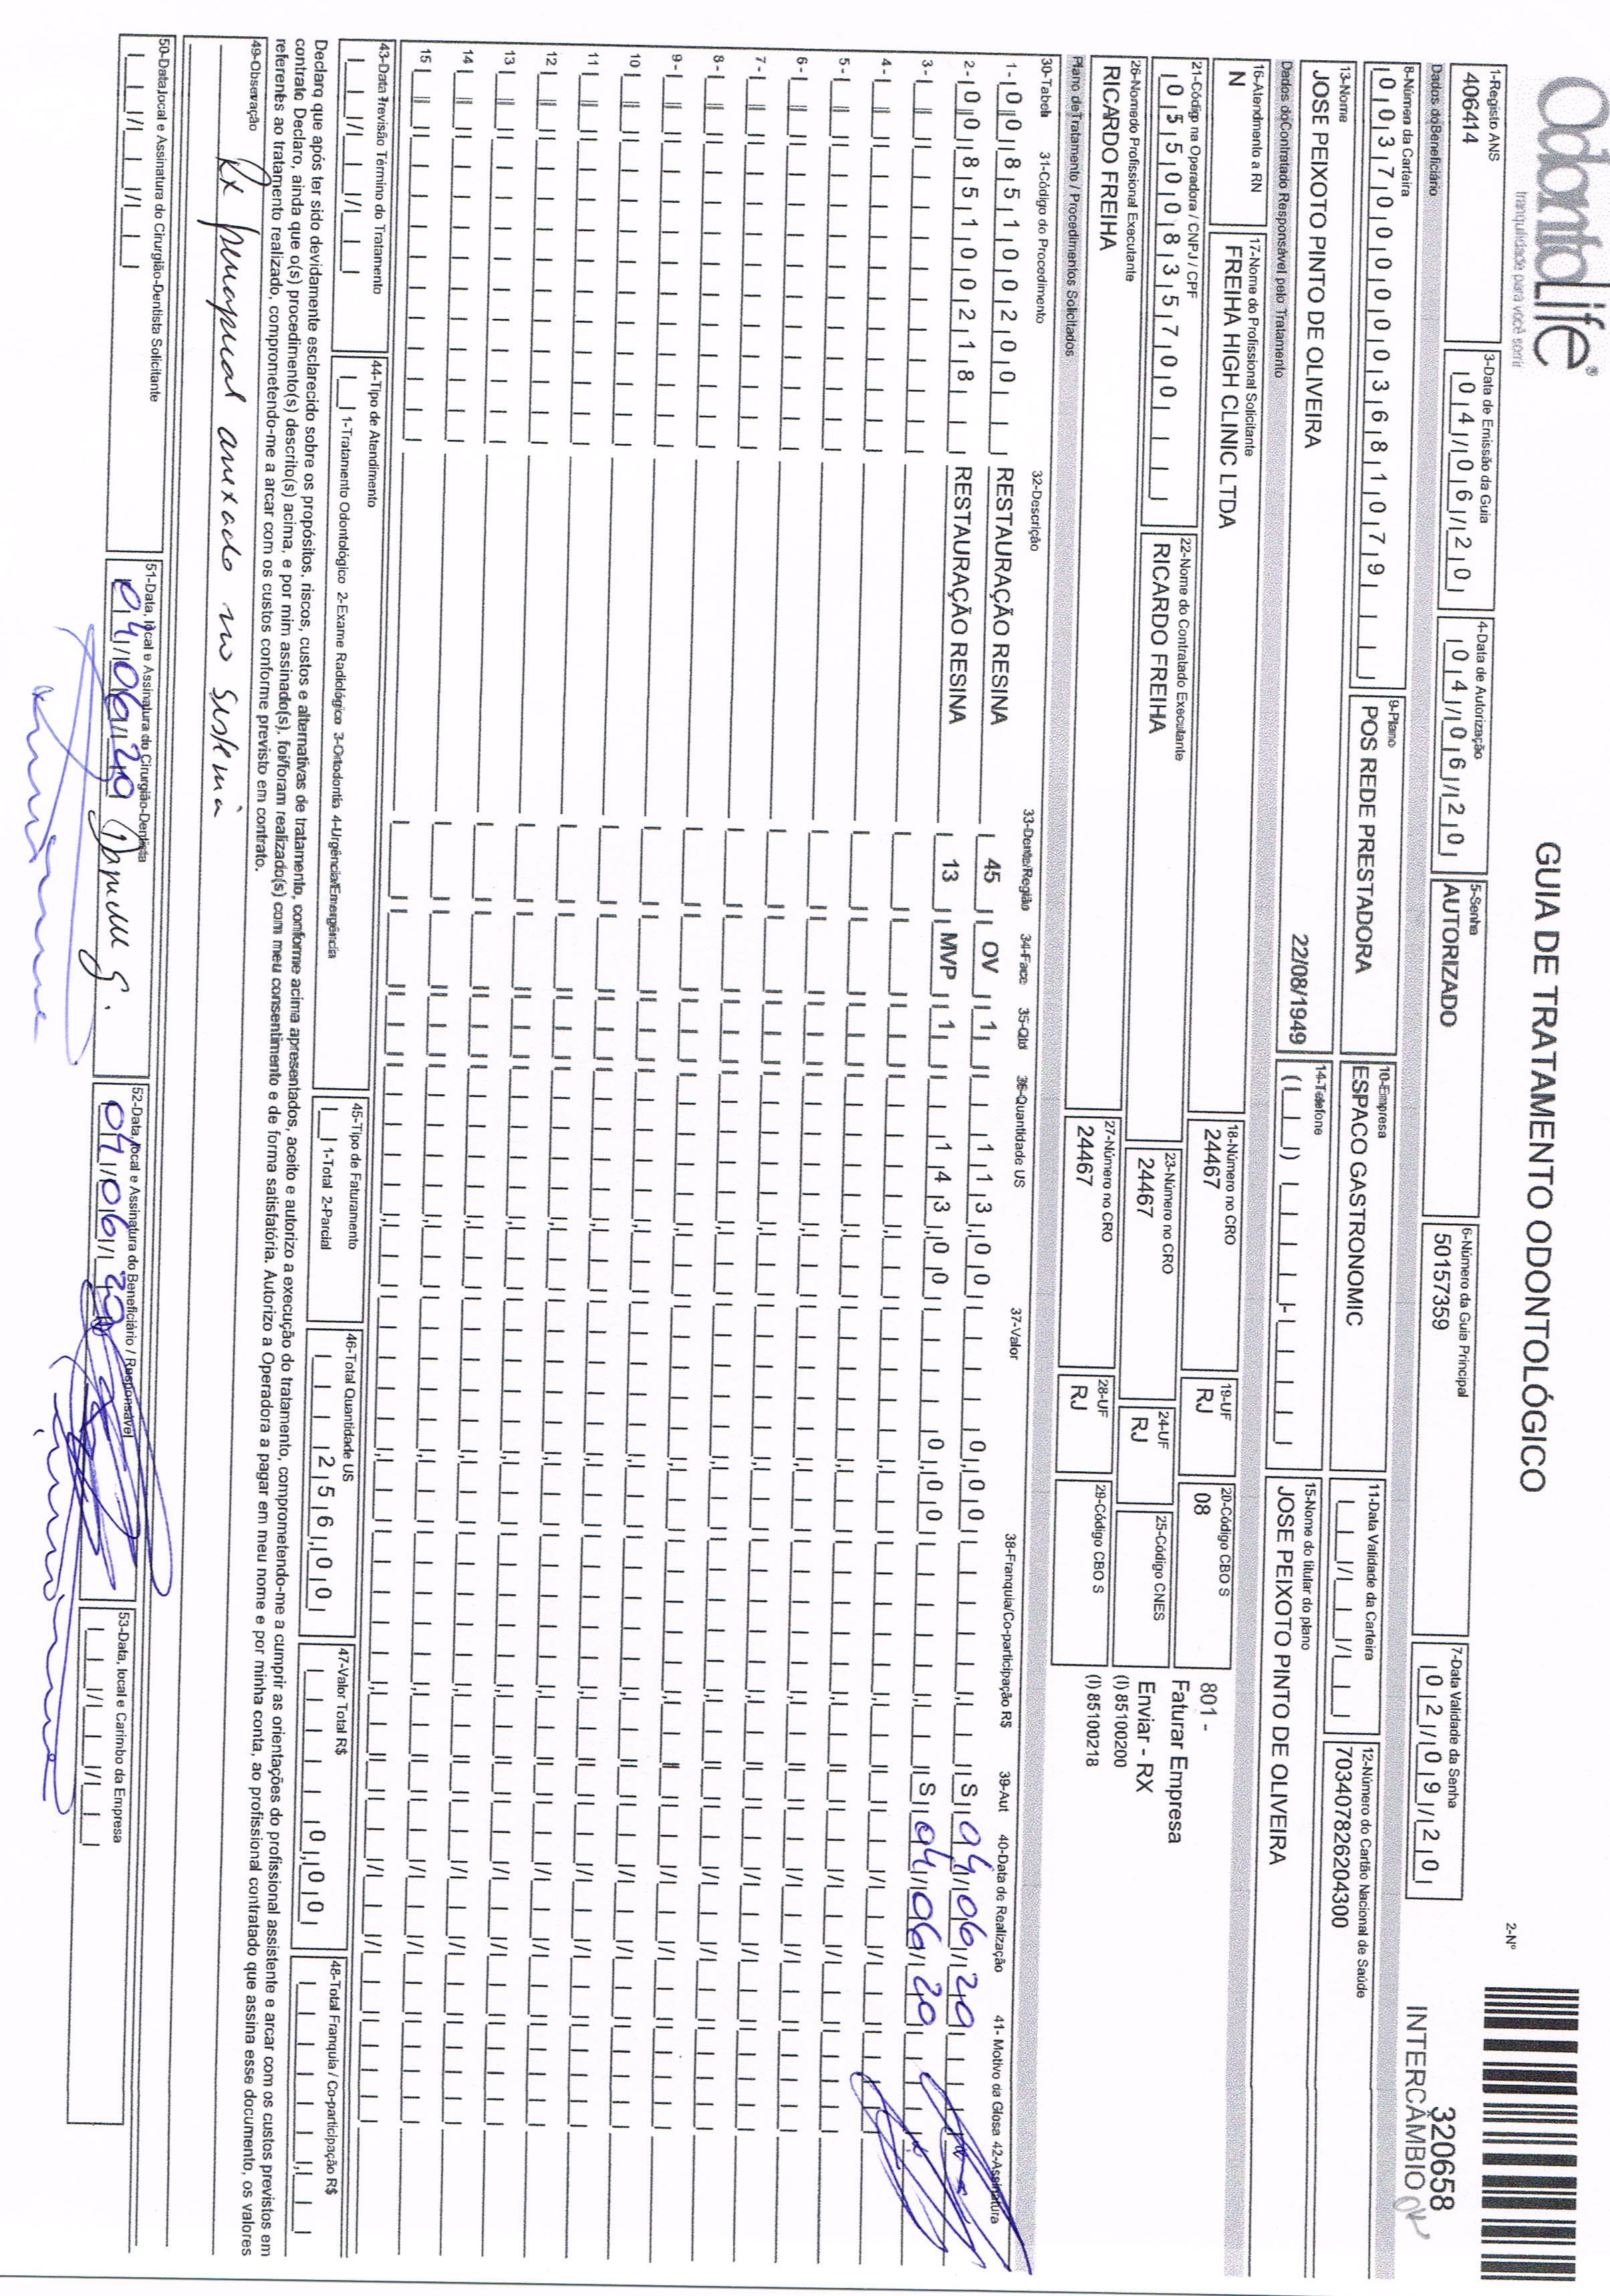 OdontoLife®
tranquilidade para você sorrir
GUIA DE TRATAMENTO ODONTOLÓGICO
2-Nº
320658
INTERCÂMBIO
OK
1-Registo ANS
406414
3-Data de Emissão da Guia
04/06/20
4-Data de Autorização
04/06/20
5-Senha
AUTORIZADO
6-Número da Guia Principal
50157359
7-Data Validade da Senha
02/09/20
Dados do Beneficiário
8-Número da Carteira
00370000003681079
9-Plano
POS REDE PRESTADORA
10-Empresa
ESPACO GASTRONOMIC
11-Data Validade da Carteira
12-Número do Cartão Nacional de Saúde
703407826204300
13-Nome
JOSE PEIXOTO PINTO DE OLIVEIRA
22/08/1949
14-Telefone
15-Nome do titular do plano
JOSE PEIXOTO PINTO DE OLIVEIRA
Dados do Contratado Responsável pelo Tratamento
16-Atendimento a RN
N
17-Nome do Profissional Solicitante
FREIHA HIGH CLINIC LTDA
18-Número no CRO
24467
19-UF
RJ
20-Código CBO S
08
801 -
Faturar Empresa
Enviar - RX
(I) 85100200
(I) 85100218
21-Código na Operadora / CNPJ / CPF
05500835700
22-Nome do Contratado Executante
RICARDO FREIHA
23-Número no CRO
24467
24-UF
RJ
25-Código CNES
26-Nomedo Profissional Executante
RICARDO FREIHA
27-Número no CRO
24467
28-UF
RJ
29-Código CBO S
Plano de Tratamento / Procedimentos Solicitados
30-Tabela 31-Código do Procedimento 32-Descrição 33-Dente/Região 34-Face 35-Qtd 36-Quantidade US 37-Valor 38-Franquia/Co-participação R$ 39-Aut 40-Data de Realização 41- Motivo da Glosa 42-Assinatura
1- 00 85100200 RESTAURAÇÃO RESINA 45 OV 1 113,00 0,00 S 04/06/20
2- 00 85100218 RESTAURAÇÃO RESINA 13 MVP 1 143,00 0,00 S 04/06/20
3-
4-
5-
6-
7-
8-
9-
10
11
12
13
14
15
43-Data Previsão Término do Tratamento
44-Tipo de Atendimento
1-Tratamento Odontológico 2-Exame Radiológico 3-Ortodontia 4-Urgência/Emergência
45-Tipo de Faturamento
1-Total 2-Parcial
46-Total Quantidade US
256,00
47-Valor Total R$
0,00
48-Total Franquia / Co-participação R$
Declaro que após ter sido devidamente esclarecido sobre os propósitos, riscos, custos e alternativas de tratamento, conforme acima apresentados, aceito e autorizo a execução do tratamento, comprometendo-me a cumprir as orientações do profissional assistente e arcar com os custos previstos em
contrato. Declaro, ainda que o(s) procedimento(s) descrito(s) acima, e por mim assinado(s), foi/foram realizado(s) com meu consentimento e de forma satisfatória. Autorizo a Operadora a pagar em meu nome e por minha conta, ao profissional contratado que assina esse documento, os valores
referentes ao tratamento realizado, comprometendo-me a arcar com os custos conforme previsto em contrato.
49-Observação
Rx periapical anexado no sistema
50-Data,local e Assinatura do Cirurgião-Dentista Solicitante
51-Data, local e Assinatura do Cirurgião-Dentista
04/06/20
52-Data,local e Assinatura do Beneficiário / Responsável
04/06/20
53-Data, local e Carimbo da Empresa